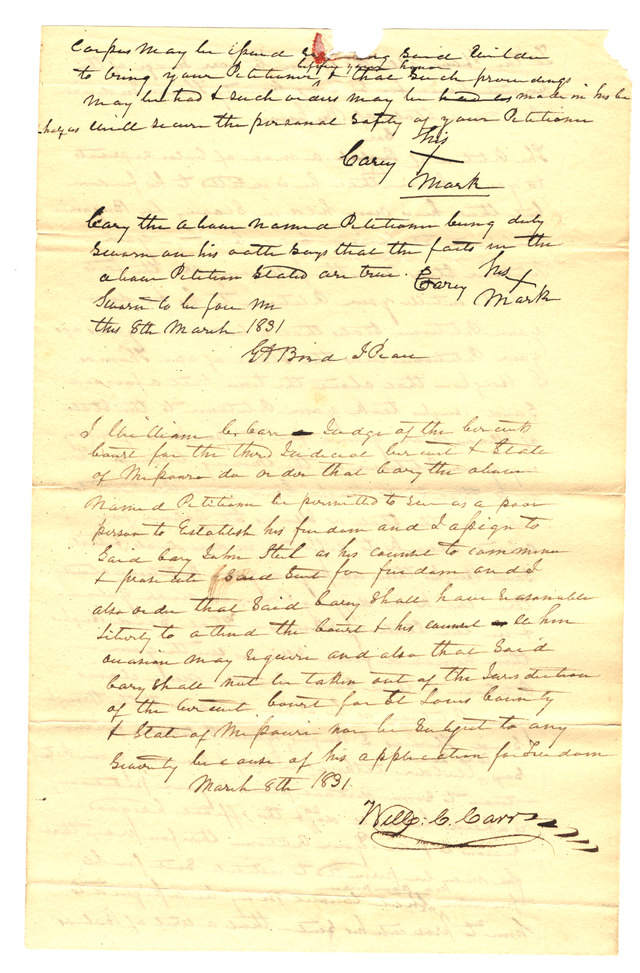 Corpus May be isued Said Wilder
to bring your Petitioner before your honor & that such proceedings
may be had & such orders may be made in his be
half as will secure the personal safety of your Petitioner
his
Carey X
Mark
Cary the above named Petitioner being duly
Sworn on his oath Says that the facts in the
above Petition Stated are true. Carey his X
Mark
Sworn to be fore me
this 8th March 1831
G A Bird J Peace
I William C. Carr Judge of the Circuit
Court for the third Judicial Circuit & State
of Missouri do order that Cary the above
Named Petitioner be permitted to Sue as a poor
person to Establish his freedom and I assign to
Said Cary John Steel as his counsel to commence
& prosecute Said Suit for freedom and I
also order that Said Cary Shall have reasonable
liberty to attend the Court & his counsel when
occasion may require and also that Said
Cary Shall not be taken out of the Jurisdiction
of the Circuit Court for St Louis County
& State of Missouri nor be Subject to any
Severity because of his application for freedom
March 8th 1831.
Will: C. Carr